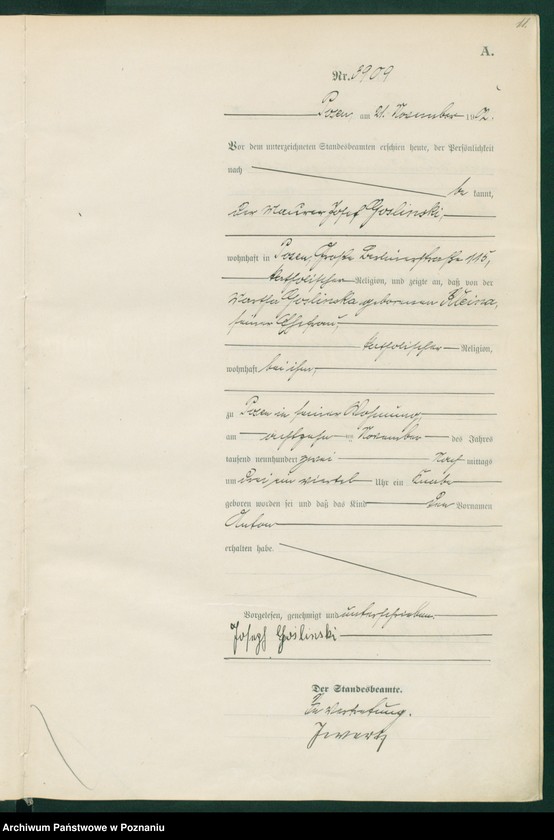 11.
A.
Nr. 3909
Posen, am 21. November 1902.
Vor dem unterzeichneten Standesbeamten erschien heute, der Persönlichkeit
nach be kannt,
der Maurer Josef Goslinski,
wohnhaft in Posen, Große Berlinerstraße 115,
katholischer Religion, und zeigte an, daß von der
Goslinska geborenen
seiner Ehefrau,
katholischer Religion,
wohnhaft bei ihm,
zu Posen in seiner Wohnung,
am achtzehn ten November des Jahres
tausend neunhundert zwei Nach mittags
um drei ein viertel Uhr ein Knabe
geboren worden sei und daß das Kind den Vornamen
Anton
erhalten habe.
Vorgelesen, genehmigt und unterschrieben.
Joseph Goslinski
Der Standesbeamte.
In Vertretung.
Archiwum Państwowe w Poznaniu